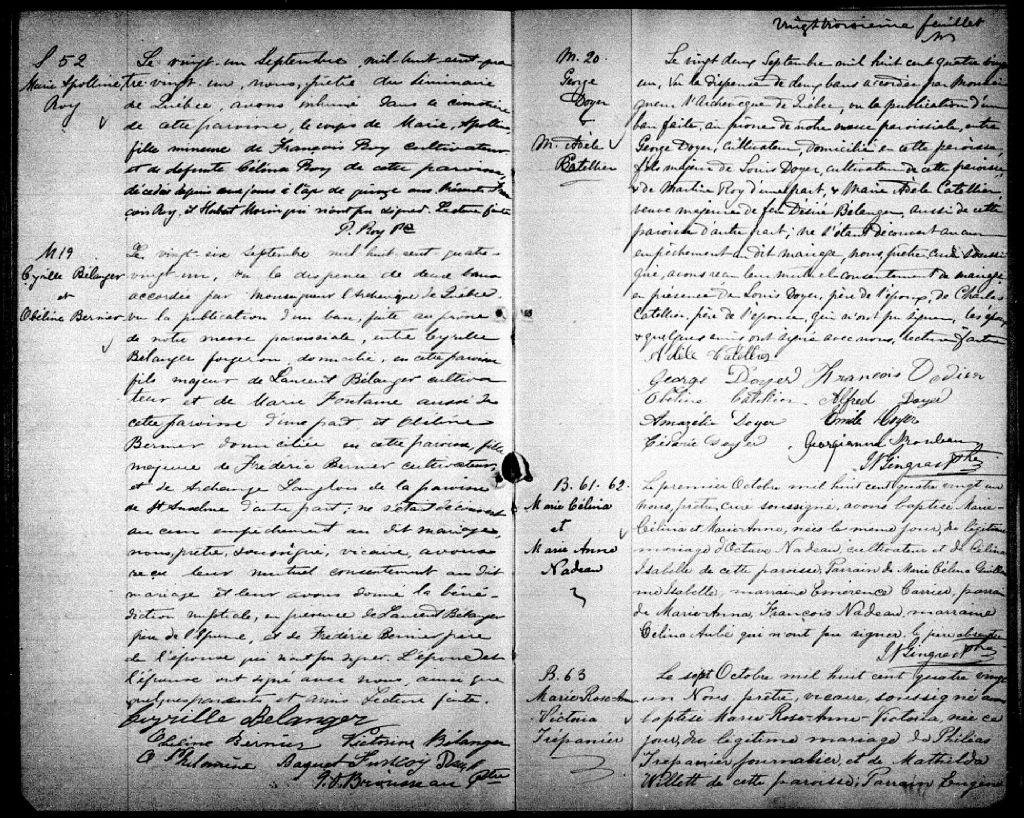 Vingt troisième feuillet
S 52
Marie Apolline
Roy
Le vingt-un Septembre mil huit cent qua
tre vingt un, nous, prêtre du Séminaire
de Québec, avons inhumé dans le cimetière
de cette paroisse, le corps de Marie, Apolline
fille mineure de François Roy cultivateur
et de défunte Célina Roy de cette paroisse,
décédée depuis jours à l'age de ans Présents Fran
çois Roy, et Hubert Morin qui n'ont pu signer. Lecture faite
P. Roy Ptre
M 19
Cyrille Bélanger
et
Obéline Bernier
Le vingt six Septembre mil huit cent quatre
vingt un, vu la dispense de deux bans
accordée par Monseigneur l'Archevêque de Québec
vu la publication d'un ban, faite au prône
de notre messe paroissiale, entre Cyrille
Bélanger forgeron, domicilié, en cette paroisse
fils majeur de Laurent Bélanger cultiva
teur et de Marie Fontaine aussi de
cette paroisse d'une part et Obéline
Bernier domiciliée en cette paroisse, fille
majeure de Frédéric Bernier cultivateur
et de Archange Langlois de la paroisse
de St Anselme d'autre part; ne s'étant découvert
aucun empêchement au dit mariage
nous, prêtre, soussigné, vicaire, avons
reçu leur mutuel consentement au dit
mariage et leur avons donné la béné-
diction nuptiale, en présence de Laurent Bélanger
père de l'époux, et de Frédéric Bernier père
de l'épouse qui n'ont pu signer. L'époux et
l'épouse ont signé avec nous, ainsi que
quelques parents et amis Lecture faite.
Cyrille Belanger
Obéline Bernier Victorine Bélanger
Philomène Baquet
J. O. Brousseau Ptre
M. 20.
George
Doyer
&
M. Adèle
Catellier
Le vingt deux Septembre mil huit cent quatre vingt
un, Vu la dispense de deux bans accordée par Monsei
gneur l'Archevêque de Québec, vu la publication d'un
ban faite, au prône de notre messe paroissiale, entre
George Doyer, Cultivateur, Domicilié en cette paroisse,
fils majeur de Louis Doyer, cultivateur de cette paroisse
& de Marthe Roy d'une part, & Marie Adèle Catellier
veuve majeure de feu Désiré Bélanger, aussi de cette
paroisse d'autre part; ne s'étant découvert aucun
empêchement au dit mariage, nous, prêtre curé soussi
gné, avons reçu leur mutuel consentement de mariage
en présence de Louis Doyer, père de l'époux, de Charles
Catellier, père de l'épouse, qui n'ont pu signer, les époux
& quelques amis ont signé avec nous, lecture faite
Adèle Catellier
George Doyer François Dodier
Obéline Catellier Alfred Doyer
Amazélie Doyer Emile
Doyer Georgianna
JN Gingras Ptre
B. 61. 62.
Marie Célina
et
Marie Anne
Nadeau
Le premier Octobre mil huit cent quatre vingt un
nous, prêtre, curé soussigné, avons baptisé Marie-
Célina et Marie Anne, nées le même jour, du légitime
mariage d'Octave Nadeau, cultivateur et de Célina
Isabelle de cette paroisse, Parrain de Marie Célina Guillau
me Isabelle, marraine Emerence Carrier, parrain
de Marie Anna, François Nadeau, marraine
Célina Aubé qui n'ont pu signer. le père absent
JN Gingras Ptre
B. 63
Marie Rose-An
Victoria
Trépanier
Le sept Octobre mil huit cent quatre vingt
un Nous prêtre, vicaire, soussigné avons
baptisé Marie-Rose-Anne-Victoria, née ce
jour, du légitime mariage de Philias
Trépanier journalier, et de Mathilda
Willett de cette paroisse; Parrain Eugène